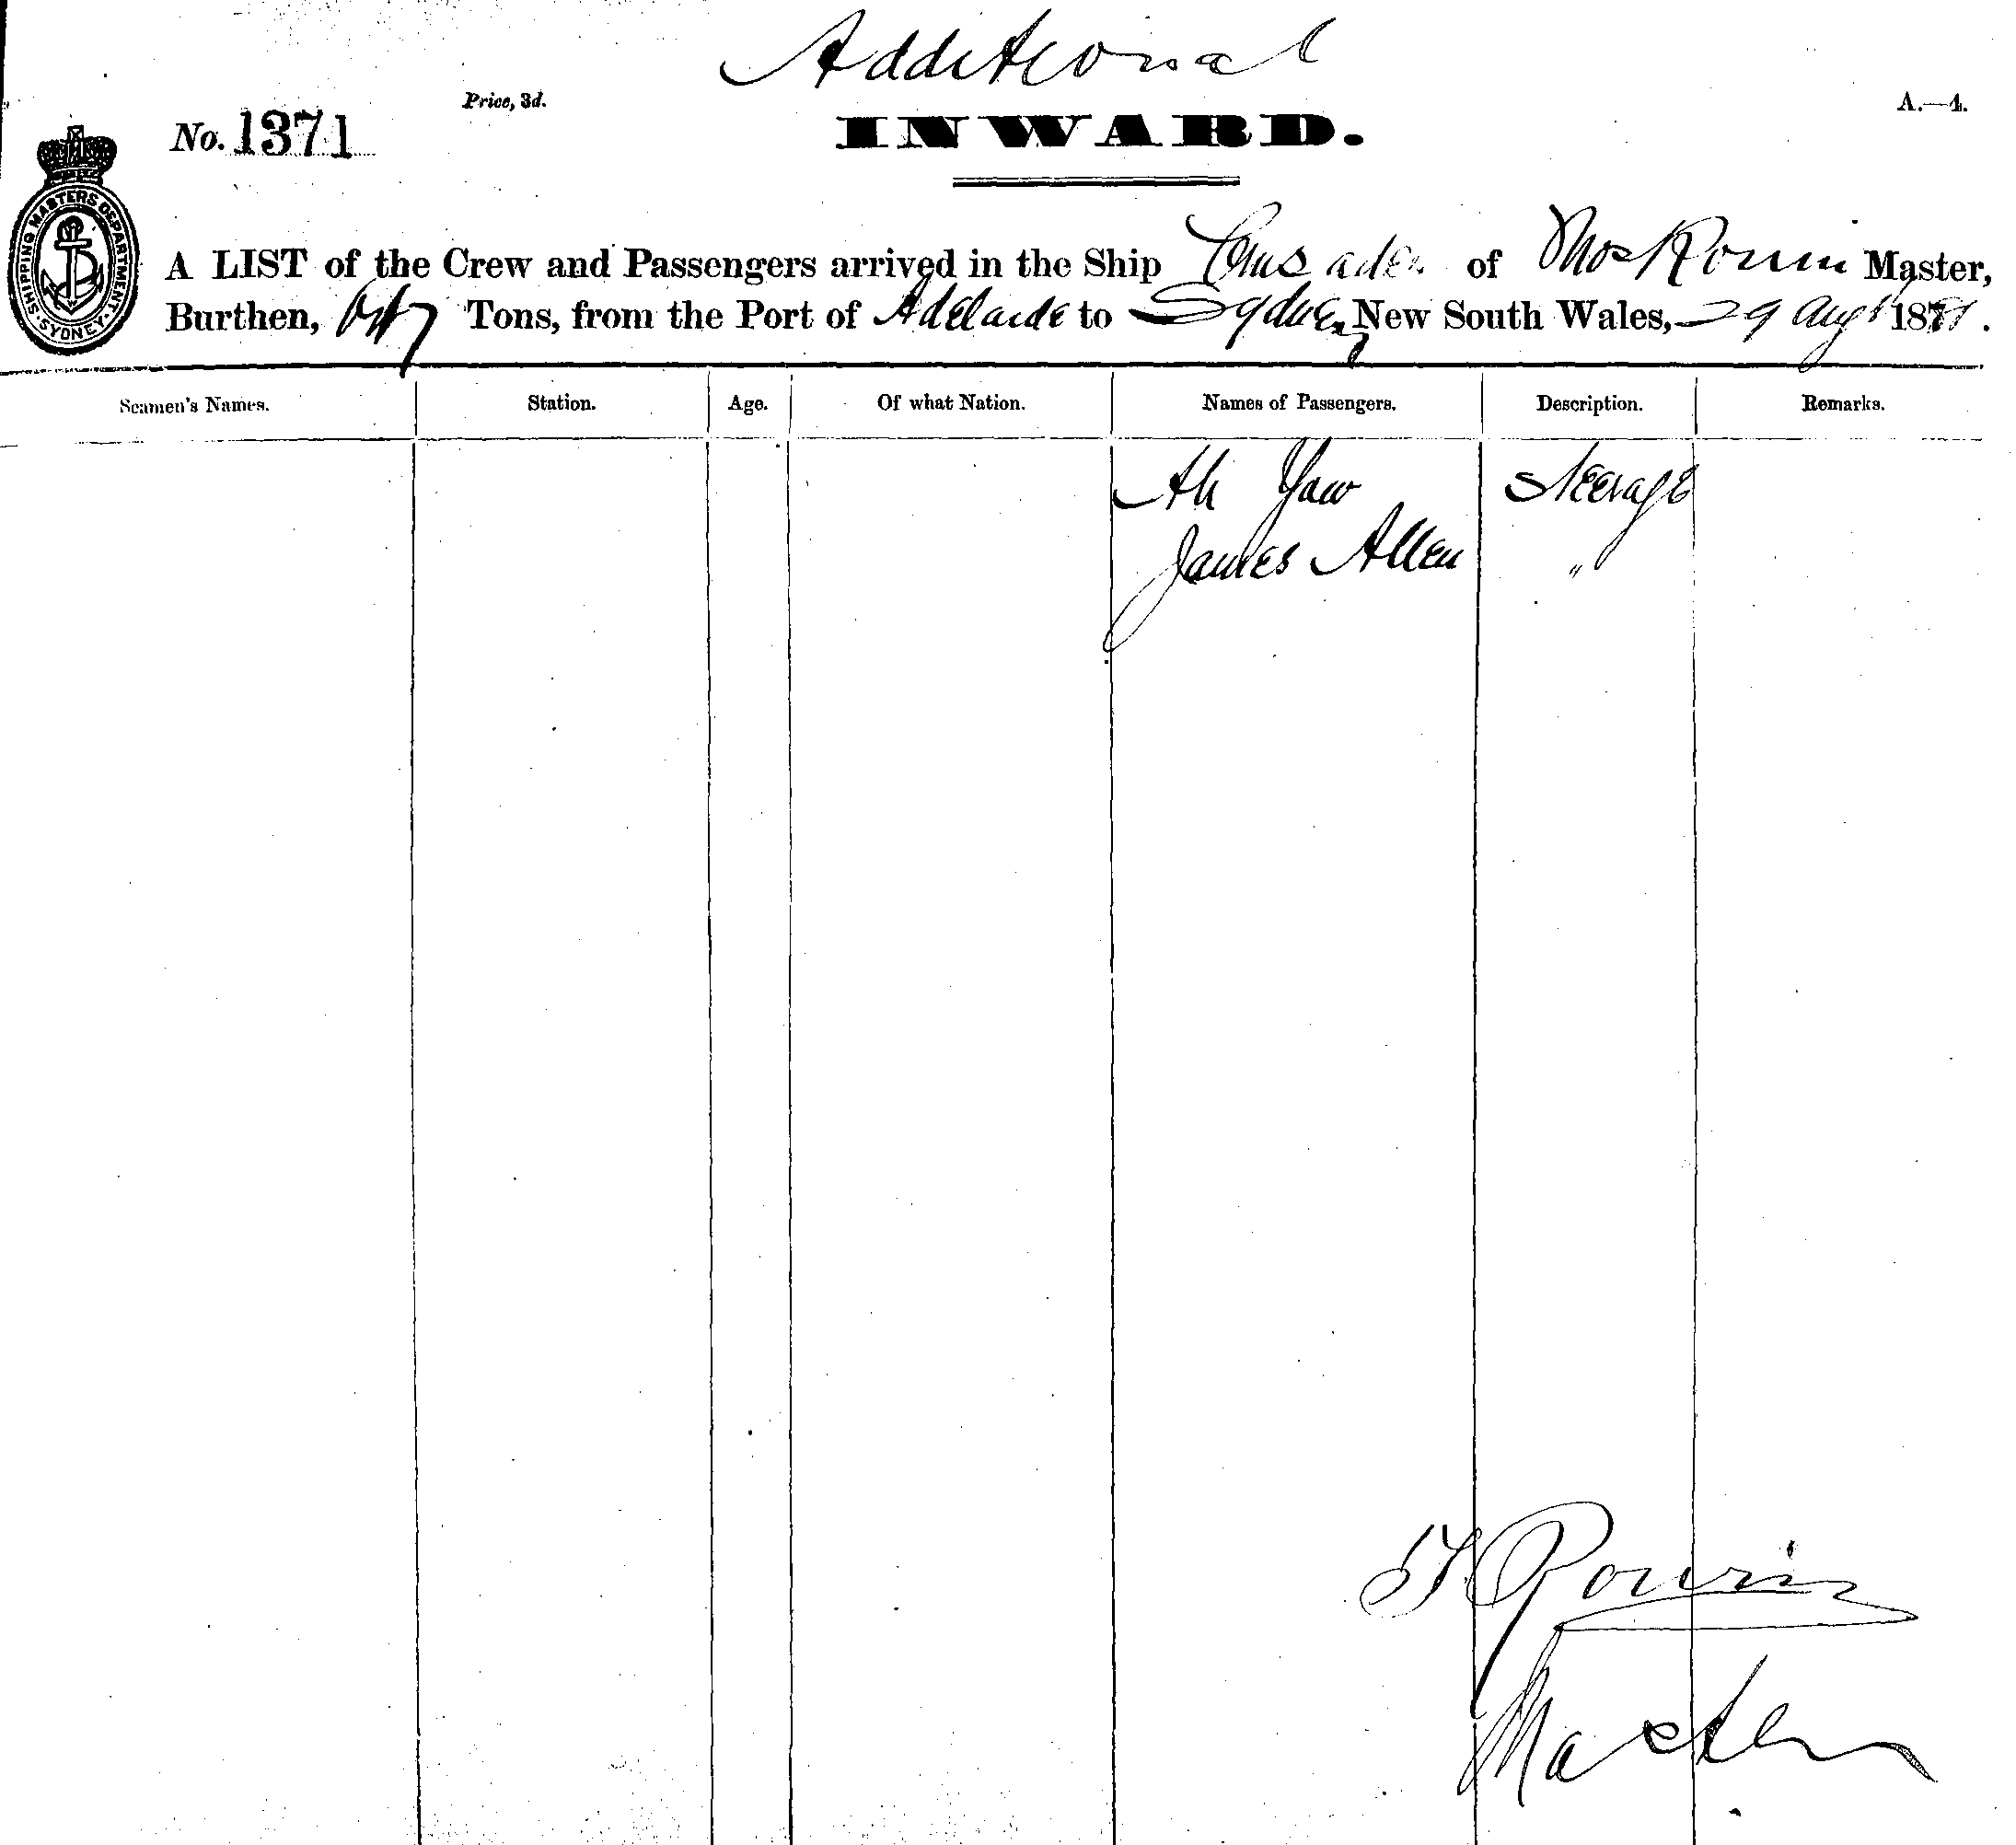 Additional
Price, 3d.
A.—4.
No. 1371
INWARD.
SHIPPING MASTERS DEPARTMENT. SYDNEY.
A LIST of the Crew and Passengers arrived in the Ship Crusader of Thos Rouin Master,
Burthen, Tons, from the Port of Adelaide to Sydney New South Wales, 29 Augt 1881.
Seamen's Names. Station. Age. Of what Nation. Names of Passengers. Description. Remarks.
Ah Yaw Steerage
James Allen "
Master